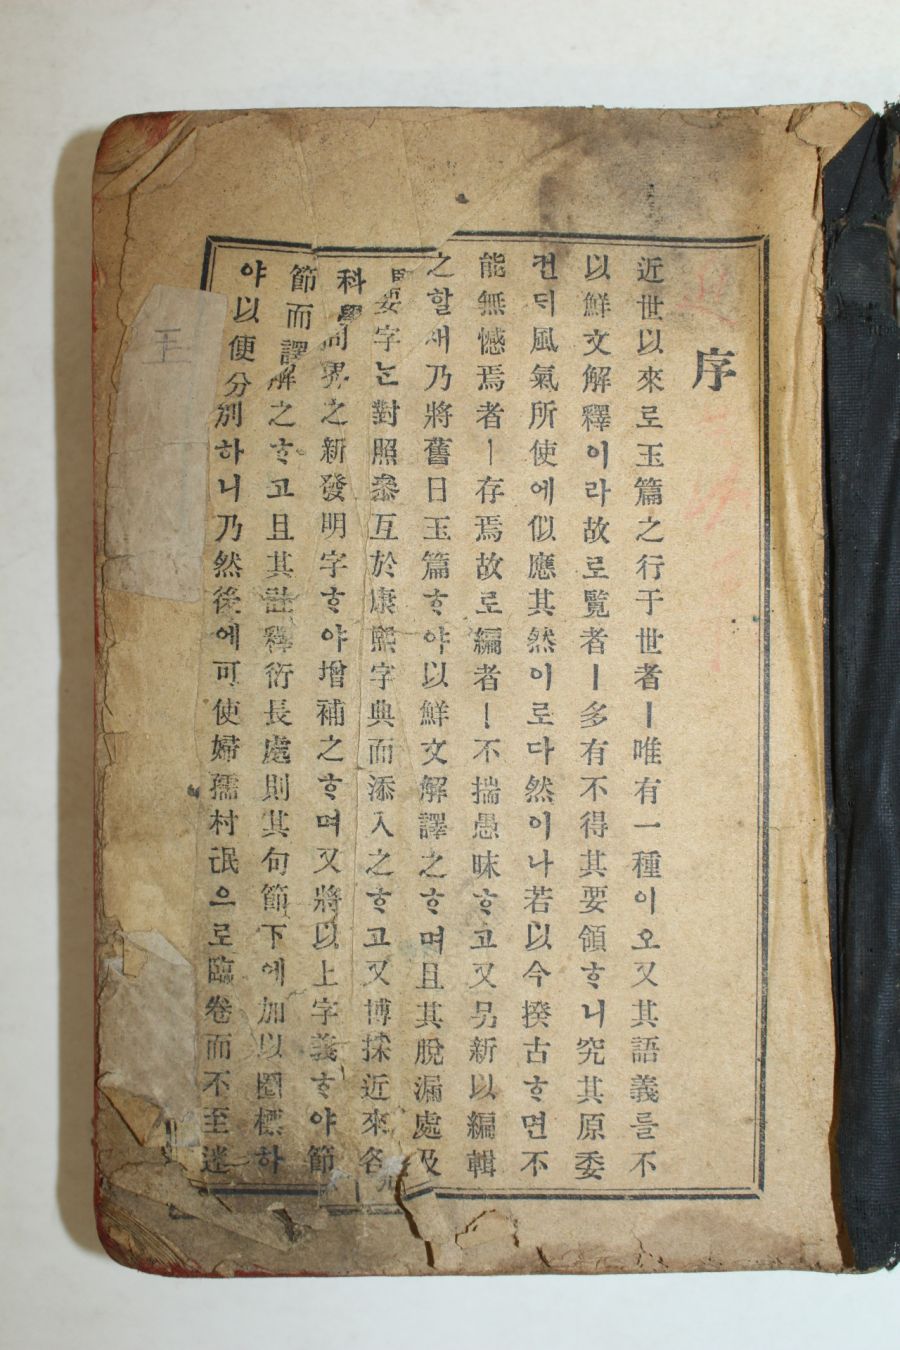 序
近世以來로玉篇之行于世者ㅣ唯有一種이오又其語義를不
以鮮文解釋이라故로覽者ㅣ多有不得其要領ᄒᆞ니究其原委
컨ᄃᆡ風氣所使에似應其然이로다然이나若以今揆古ᄒᆞ면不
能無憾焉者ㅣ存焉故로編者ㅣ不揣愚昧ᄒᆞ고又另新以編輯
之할ᄉᆡ乃將舊日玉篇ᄒᆞ야以鮮文解譯之ᄒᆞ며且其脫漏處及
要字ᄂᆞᆫ對照叅互於康熙字典而添入之ᄒᆞ고又博採近來各
科學問界之新發明字ᄒᆞ야增補之ᄒᆞ며又將以上字義ᄒᆞ야節
節而譯解之ᄒᆞ고且其註釋衍長處則其句節下에加以圈標하
야以便分別하니乃然後에可使婦孺村氓으로臨卷而不至迷